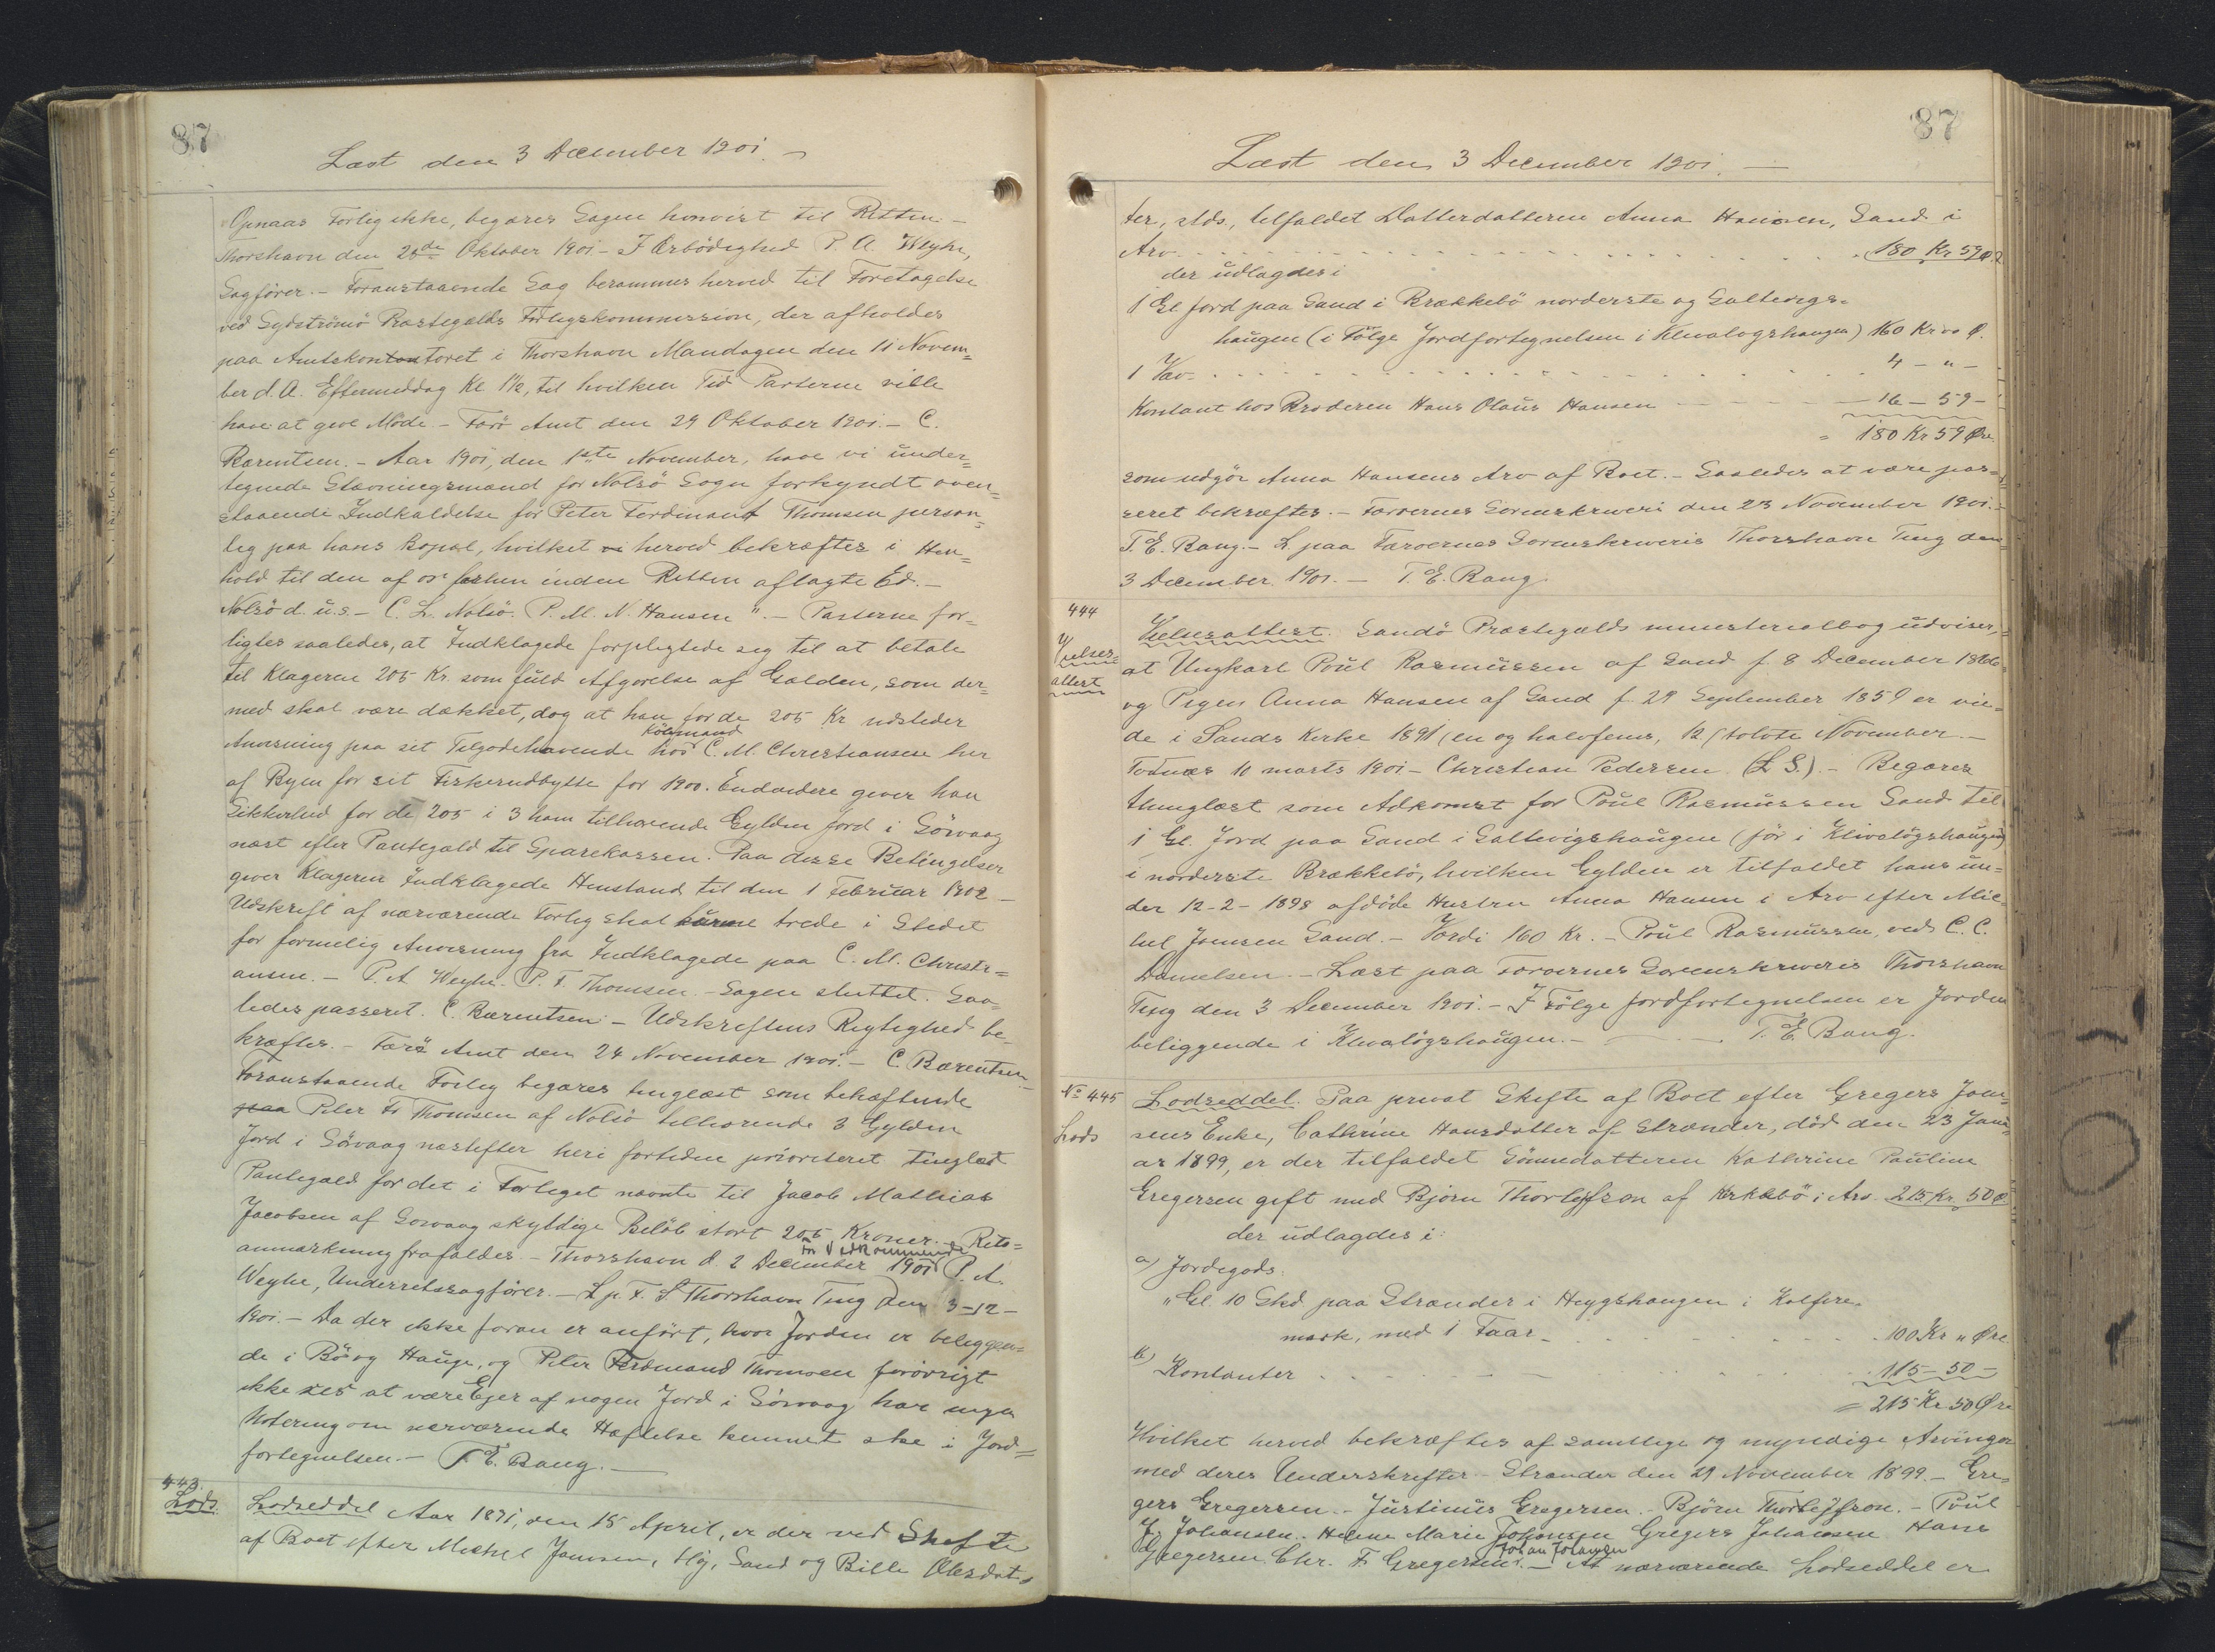 87
Læst den 3 December 1901. —
Opnaas Forlig ikke, begæres Sagen henvist til Retten. —
Thorshavn den 28de Oktober 1901. — I Ærbödighed P. A. Weyhe,
Sagförer. — Foranstaaende Sag berammes herved til Foretagelse
ved Sydströmö Præstegælds Forligskommission, der afholdes
paa Amtskontoret i Thorshavn Mandagen den 11 Novem=
ber d. A. Eftermiddag Kl 1½, til hvilken Tid Parterne ville
have at give Möde. — Färö Amt den 29 Oktober 1901. — C.
Bærentsen. — Aar 1901, den 1ste November, have vi under=
tegnede Stævningsmænd for Nolsö Sogn forkyndt oven=
staaende Indkaldelse for Peter Ferdinant Thomsen person=
lig paa hans Bopæl, hvilket vi herved bekræfter i Hen=
hold til den af os forhen inden Retten aflagte Ed. —
Nolsö d. u. s. — C. L. Nolsö. P. M. N. Hansen". — Parterne for=
ligtes saaledes, at Indklagede forpligtede sig til at betale
til Klageren 205 Kr. som fuld Afgörelse af Gælden, som der=
med skal være dækket, dog at han for de 205 Kr udsteder
Anvisning paa sit Tilgodehavende hos Köbmand C. M. Christiansen her
af Byen for sit Fiskeriudbytte for 1900. Endvidere giver han
Sikkerhed for de 205 i 3 ham tilhørende Gylden Jord i Sörvaag
næst efter Pantegæld til Sparekassen. Paa disse Betingelser
giver Klageren Indklagede Henstand til den 1 Februar 1902 —
Udskrift af nærværende Forlig skal kunne træde i Stedet
for formelig Anvisning fra Indklagede paa C. M. Christi=
ansen. — P. A Weyhe. P. F. Thomsen. — Sagen sluttet. Saa=
ledes passeret. C. Bærentsen. — Udskriftens Rigtighed be=
kræftes. — Færö Amt den 24 November 1901. — C. Bærentsen. —
Foranstaaende Forlig begæres tinglæst som behæftende
paa Peter Fr Thomsen af Nolsö tilhørende 3 Gylden
Jord i Sörvaag næstefter heri fortiden prioriteret tinglæst
Pantegæld for det i Forliget nævnte til Jacob Mathias
Jacobsen af Sorvaag skyldige Beløb stort 205 Kroner. — Rets=
anmærkning frafaldes. — Thorshavn d. 2 December 1901 for Vedkommende P. A.
Weyhe, Underretssagförer. — L. p. F. S. Thorshavn Ting den 3-12-
1901. — Da der ikke foran er anfört, hvor Jorden er beliggen=
de i Bö og Hauge, og Peter Ferdinand Thomsen forövrigt
ikke ses at være Ejer af nogen Jord i Sörvaag har ingen
Notering om nærværende Hæftelse kunnet ske i Jord=
fortegnelsen. — T. E. Bang. —
443.
Lods.
Lodseddel Aar 1871, den 15 April, er der ved Skifte
af Boet efter Michel Joensen, Höj, Sand og Bille Olesdat=
87
Læst den 3 December 1901. —
ter, stds., tilfaldet Datterdatteren Anna Hansen, Sand i
Arv . . . 180 Kr 59 Ø.
der udlagdes i
1 Gl Jord paa Sand i Brækkebö norderste og Galtevigs=
haugen (i Fölge Jordfortegnelsen i Klivalögshaugen) 160 Kr 00 Ø.
1 Væv . . . 4 — " —
Kontant hos Broderen Hans Olaus Hansen — 16 — 59 —
= 180 Kr 59 Øre.
som udgör Anna Hansens Arv af Boet. — Saaledes at være pas=
seret bekræftes. — Færøernes Sorenskriveri den 23 November 1901. —
T. E. Bang. — L. paa Færøernes Sorenskriveris Thorshavn Ting den
3 December 1901. — T. E. Bang.
444
Vielses
attest
Vielsesattest. Sandö Præstegælds ministerialbog udviser,
at Ungkarl Poul Rasmussen af Sand f. 8 December 1866
og Pigen Anna Hansen af Sand f. 29 September 1859 er vie=
de i Sands Kirke 1891 (en og halvfems, 12 (tolvte November. —
Todnæs 10 marts 1901 — Christian Pedersen. (L. S.). — Begæres
thinglæst som Adkomst for Poul Rasmussen Sand til
1 Gl. Jord paa Sand i Galtevigshaugen (för i Klivalögshaugen)
i norderste Brækkebö, hvilken Gylden er tilfaldet hans un=
der 12-2-1898 afdöde Hustru Anna Hansen i Arv efter Mic=
hel Joensen Sand. — Værdi 160 Kr. — Poul Rasmussen, ved C. C.
Danielsen. — Læst paa Færøernes Sorenskriveris Thorshavn
Ting den 3 December 1901. — I Fölge Jordfortegnelsen er Jorden
beliggende i Klivalögshaugen. — T. E. Bang.
No 445
Lods
Lodseddel. Paa privat Skifte af Boet efter Gregers Joen=
sens Enke, Cathrine Hansdatter af Strænder, död den 23 Janu=
ar 1899, er der tilfaldet Sönnedatteren Kathrine Pauline
Gregersen gift med Björn Thorleifson af Kirkebö i Arv 215 Kr. 50 Ø
der udlagdes i:
a) Jordegods:
" Gl. 10 Skd. paa Strænder i Heygshaugen i Kolfire=
mark, med 1 Faar — 100 Kr " Øre
b) Kontanter . . . 115 — 50 —
= 215 Kr 50 Øre
Hvilket herved bekræftes af samtlige og myndige Arvinger
med deres Underskrifter. — Strænder den 29 November 1899. — Gre=
gers Gregersen. — Justinus Gregersen. — Björn Thorleifson. — Poul
J. Johansen. Helene Marie Johansen Gregers Johansen Hans
Gregersen. Chr. F. Gregersen. Johan Johansen — At nærværende Lodseddel er